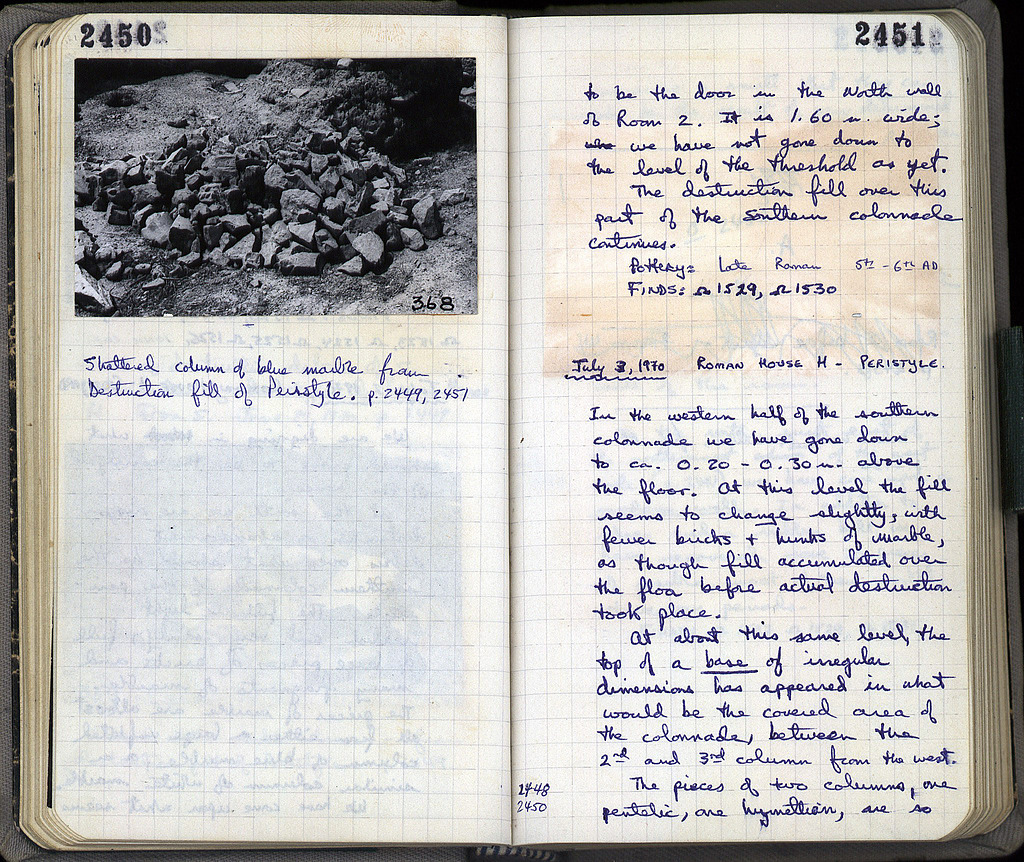 2450
368
Shattered column of blue marble from
Destruction fill of Peristyle. p. 2449, 2451
2451
to be the door in the North wall
of Room 2. It is 1.60 m. wide;
we have not gone down to
the level of the threshold as yet.
The destruction fill over this
part of the southern colonnade
continues.
Pottery: Late Roman 5th - 6th AD
FINDS: Ω 1529, Ω 1530
July 3, 1970 ROMAN HOUSE H - PERISTYLE.
In the western half of the southern
colonnade we have gone down
to ca. 0.20 - 0.30 m. above
the floor. At this level the fill
seems to change slightly, with
fewer bricks + hunks of marble,
as though fill accumulated over
the floor before actual destruction
took place.
At about this same level, the
top of a base of irregular
dimensions has appeared in what
would be the covered area of
the colonnade, between the
2nd and 3rd column from the west.
2448
2450
The pieces of two columns, one
pentelic, one hymettian, are so